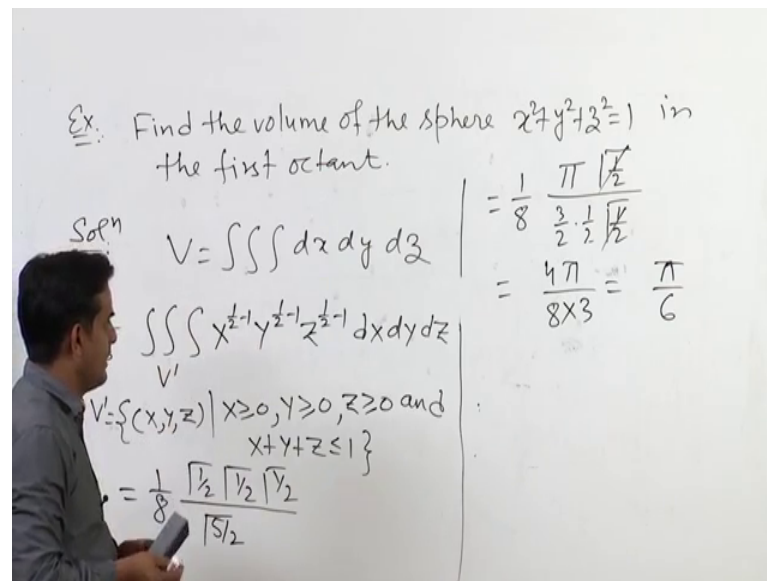 Ex. Find the volume of the sphere x²+y²+z²=1 in
the first octant.
Solⁿ
V = ∫∫∫ dx dy dz
∫∫∫_V' X^{1/2-1} Y^{1/2-1} Z^{1/2-1} dX dY dZ
V'={(X,Y,Z) | X≥0, Y≥0, Z≥0 and
X+Y+Z≤1}
= 1/8 Γ1/2 Γ1/2 Γ1/2 / Γ5/2
= 1/8 π Γ1/2 / 3/2 · 1/2 Γ1/2
= 4π / 8×3 = π/6